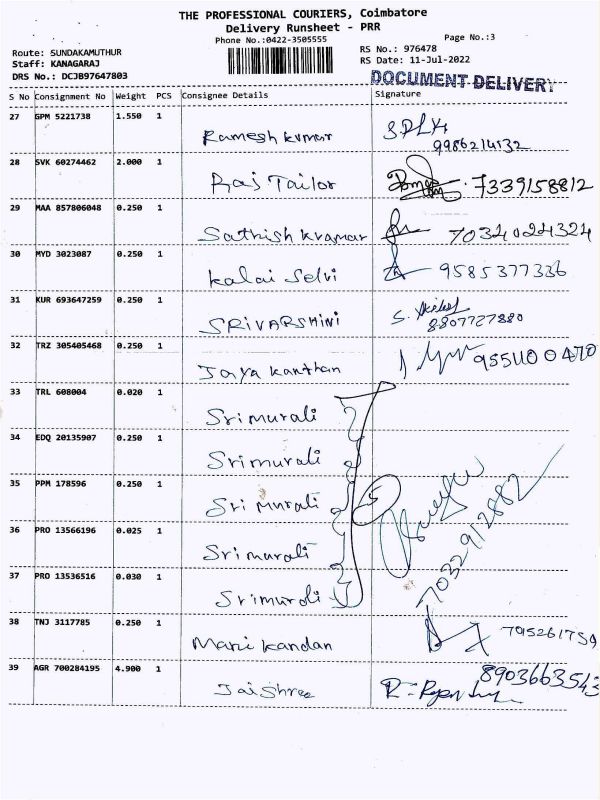 THE PROFESSIONAL COURIERS, Coimbatore
Delivery Runsheet - PRR
Phone No.:0422-3505555
Page No.:3
Route: SUNDAKAMUTHUR
RS No.: 976478
Staff: KANAGARAJ
RS Date: 11-Jul-2022
DRS No.: DCJB97647803
DOCUMENT DELIVERY
S No Consignment No Weight PCS Consignee Details Signature
27 GPM 5221738 1.550 1 Ramesh kumar 9986214132
28 SVK 60274462 2.000 1 Raj Tailor 7339158812
29 MAA 857806048 0.250 1 Sathish kumar 70340 224324
30 MYD 3023087 0.250 1 Kalai Selvi 9585377336
31 KUR 693647259 0.250 1 SRIVARSHINI 8807727880
32 TRZ 305405468 0.250 1 Jaya kanthan 9551100470
33 TRL 608004 0.020 1 Srimurali
34 EDQ 20135907 0.250 1 Srimurali
35 PPM 178596 0.250 1 Srimurali 5
36 PRO 13566196 0.025 1 Srimurali 7032912882
37 PRO 13536516 0.030 1 Srimurali
38 TNJ 3117785 0.250 1 Mani kandan 795261759
39 AGR 700284195 4.900 1 Jaishree 8903663543